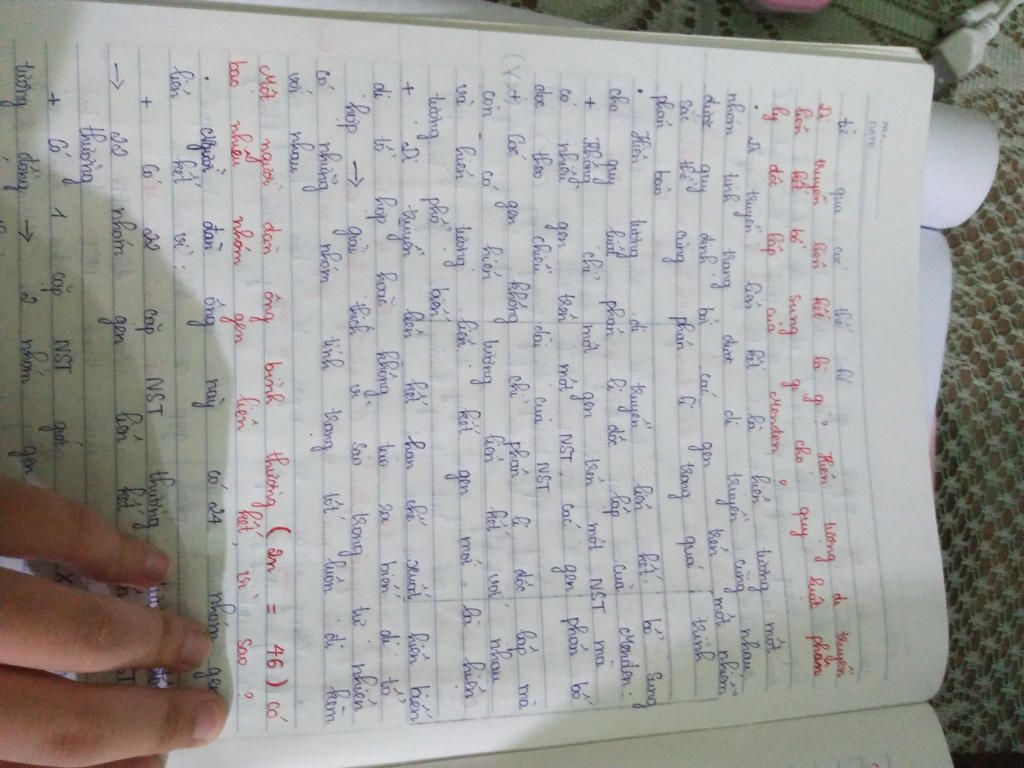 NO.
DATE
tử qua các thế hệ
Di truyền liên kết là gì? Hiện tượng di truyền
liên kết bổ sung gì cho quy luật phân
ly độc lập của Menđen?
• Di truyền liên kết là hiện tượng một
nhóm tính trạng được di truyền cùng nhau,
được quy định bởi các gen trên một nhiễm
sắc thể cùng phân li trong quá trình
phân bào
• Hiện tượng di truyền liên kết bổ sung
cho quy luật phân li độc lập của Menđen:
+ Không chỉ một gen trên một NST mà
có nhiều gen trên một NST, các gen phân bố
dọc theo chiều dài của NST
+ Các gen không chỉ phân li độc lập mà
còn có hiện tượng liên kết với nhau
và hiện tượng liên kết gen mới là hiện
tượng phổ biến
+ Di truyền liên kết hạn chế xuất hiện biến
dị tổ hợp hoặc không tạo ra biến dị tổ
hợp → giải thích vì sao trong tự nhiên
có những nhóm tính trạng tốt luôn đi kèm
với nhau
Một người đàn ông bình thường (2n = 46) có
bao nhiêu nhóm gen liên kết, vì sao?
• Người đàn ông này có 24 nhóm gen
liên kết vì:
+ Có 22 cặp NST thường
→ 22 nhóm gen liên kết
thường
+ Có 1 cặp NST giới
tương đồng → 2 nhóm gen